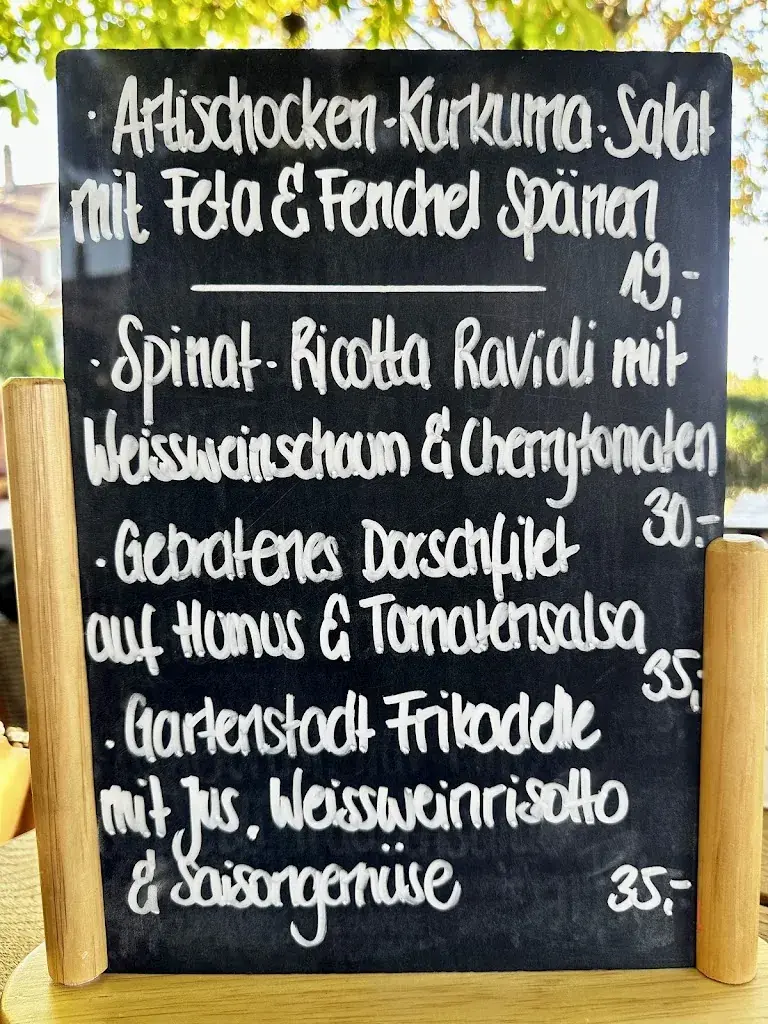 · Artischocken-Kurkuma-Salat
mit Feta & Fenchel Spänen
19,-
· Spinat-Ricotta Ravioli mit
Weissweinschaum & Cherrytomaten
30.-
· Gebratenes Dorschfilet
auf Humus & Tomatensalsa
35,-
· Gartenstadt Frikadelle
mit Jus, Weissweinrisotto
& Saisongemüse 35,-